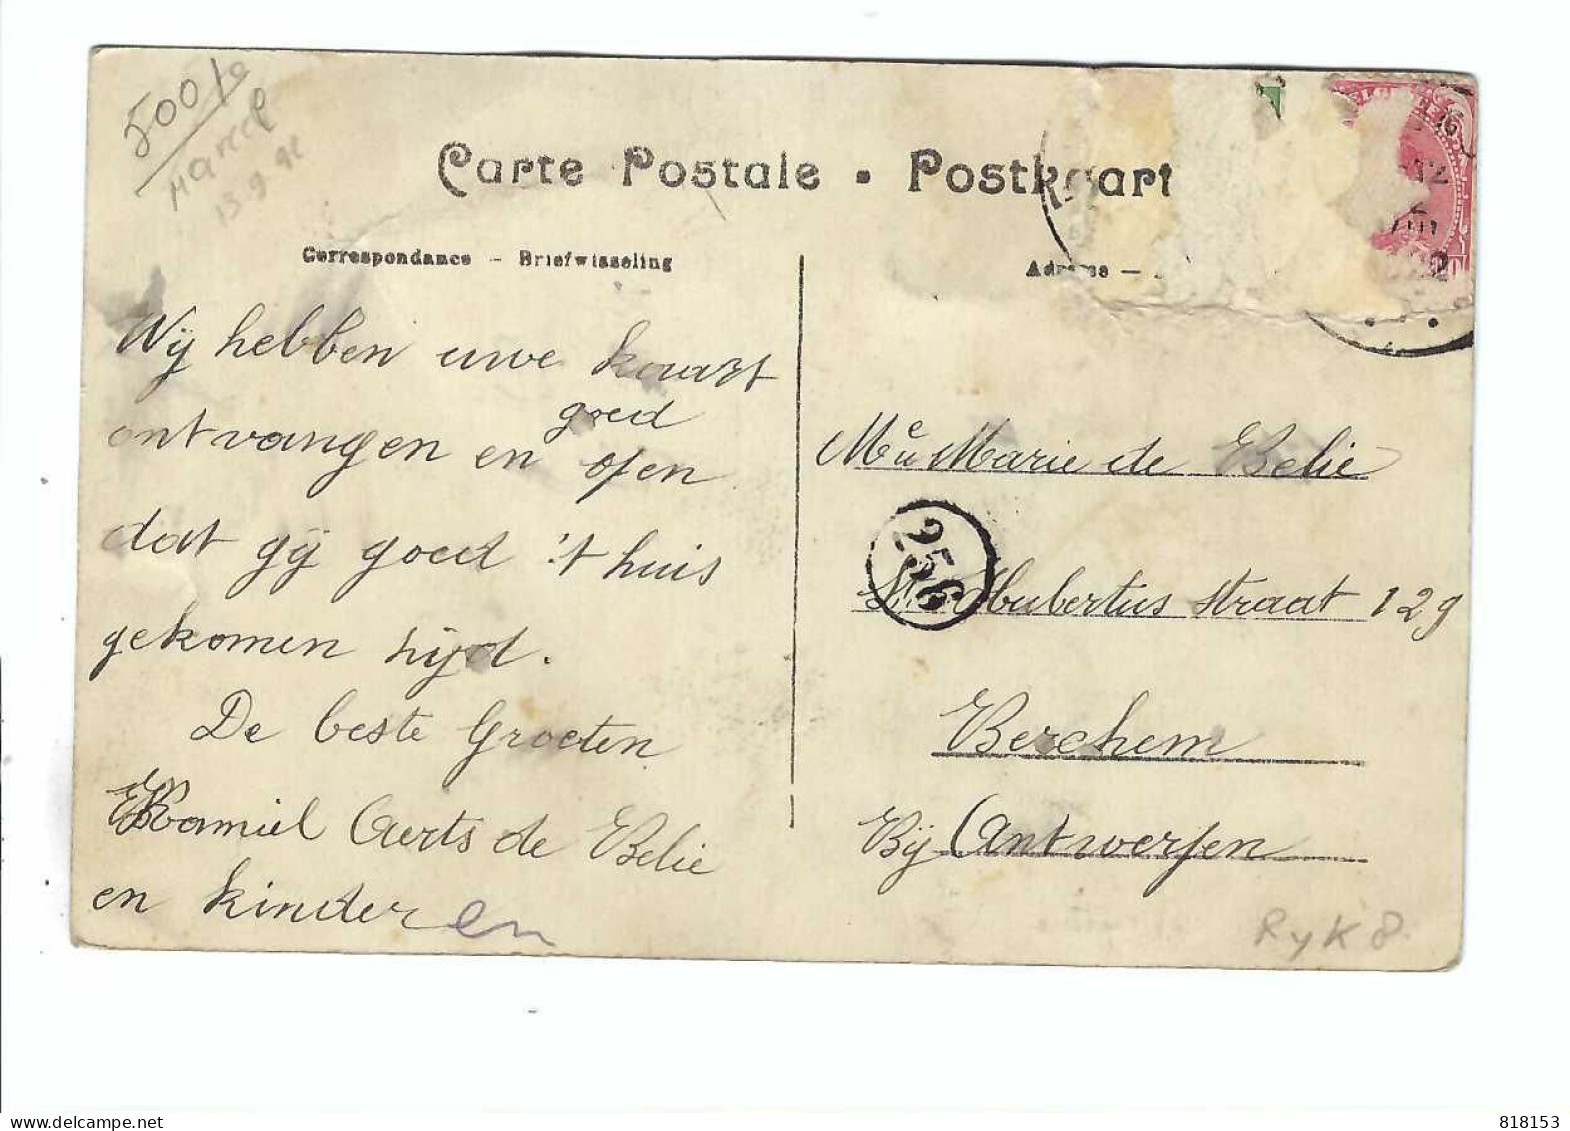 500 fr
Marcel
15.9.92
Carte Postale • Postkaart
Correspondance - Briefwisseling
Adresse -
Wij hebben uwe kaart
goed
ontvangen en open
dat gij goed 't huis
gekomen zijd.
De beste Groeten
Kamiel Aerts de Belie
en kinderen
Me Marie de Belie
256
St Hubertus straat 129
Berchem
Bij Antwerpen
Ryk 8
818153